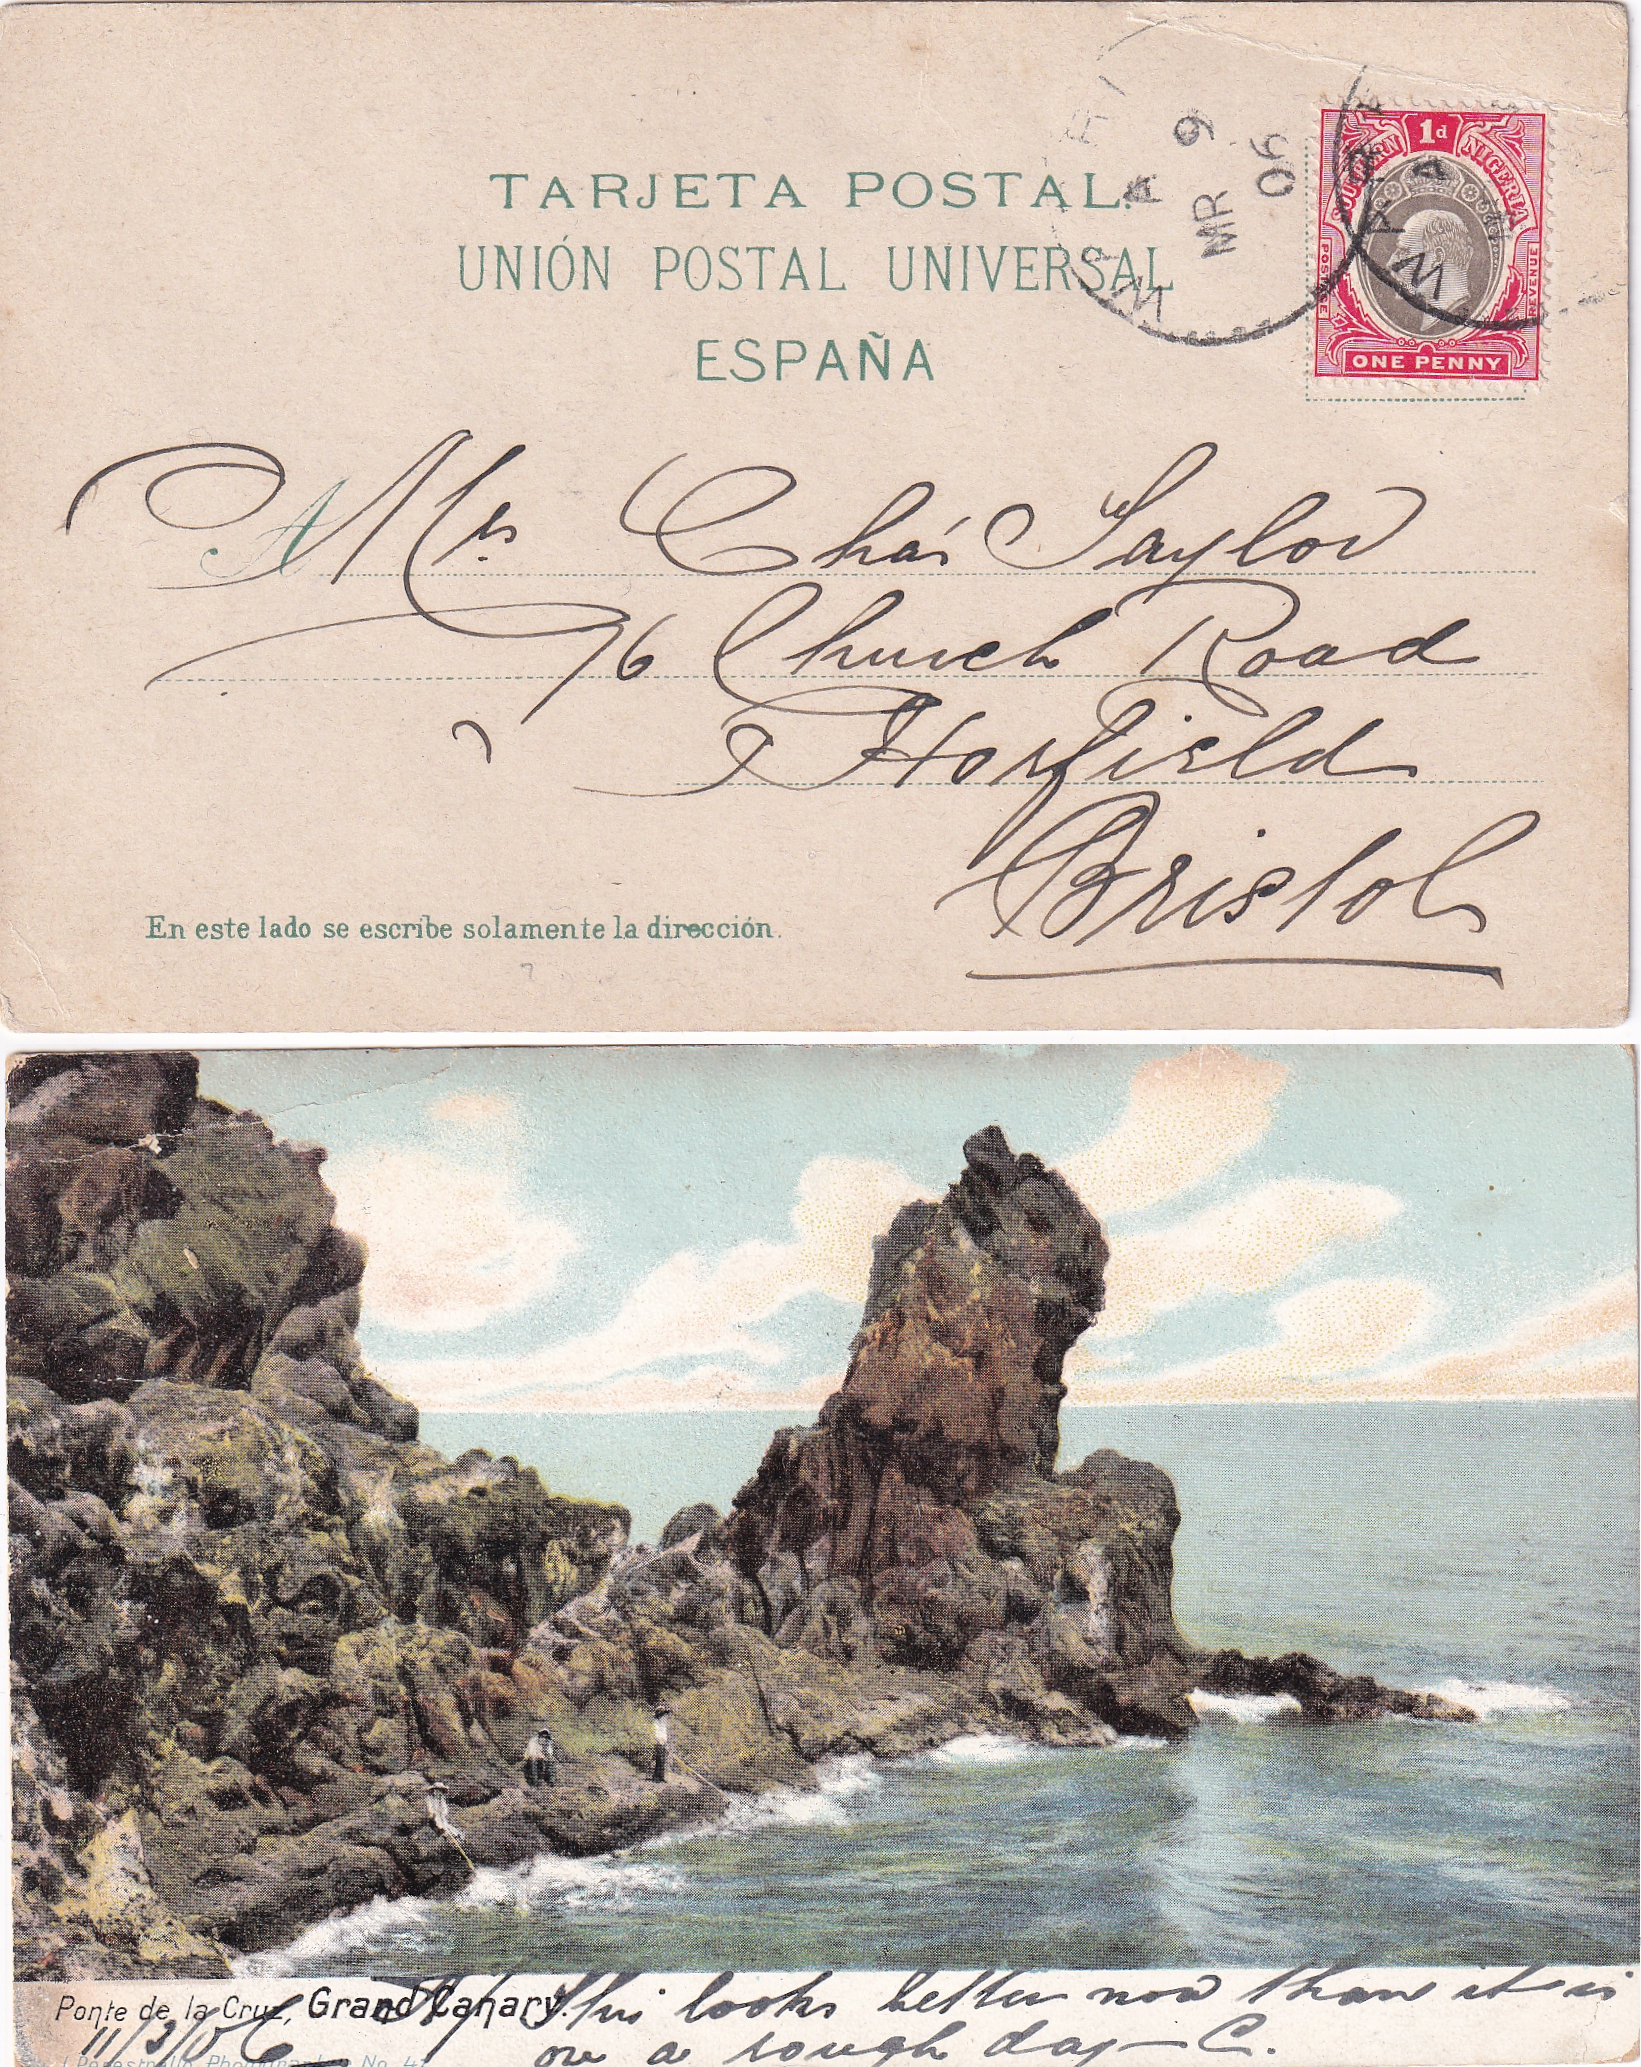 TARJETA POSTAL.
UNIÓN POSTAL UNIVERSAL
ESPAÑA
WARRI
MR 9
06
WARRI
1d
SOUTHERN NIGERIA
POSTAGE
REVENUE
ONE PENNY
A Mrs Chas Taylor
96 Church Road
Horfield
Bristol
En este lado se escribe solamente la dirección.
Ponte de la Cruz, Grand Canary.
This looks better now than it is
on a rough day — C.